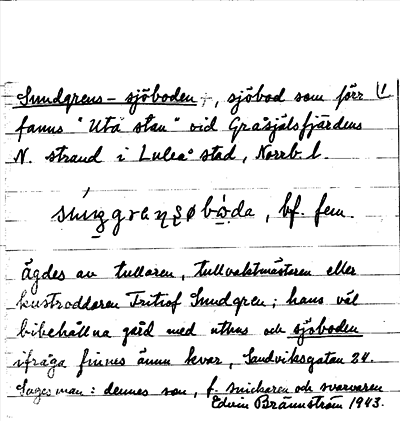 Sundgrens-sjöboden +, sjöbod som förr 1
fanns "Utä stan" vid Gråsjälsfjärdens
N. strand i Luleå stad, Norrb. l.
bf. fem.
Ägdes av tullaren, tullvaktmästaren eller
kustroddaren Fritiof Sundgren; hans väl
bibehållna gård med uthus och sjöboden
ifråga finnes ännu kvar, Sandviksgatan 24.
Sagesman: dennes son, f. snickaren och svarvaren
Edvin Brännström 1943.